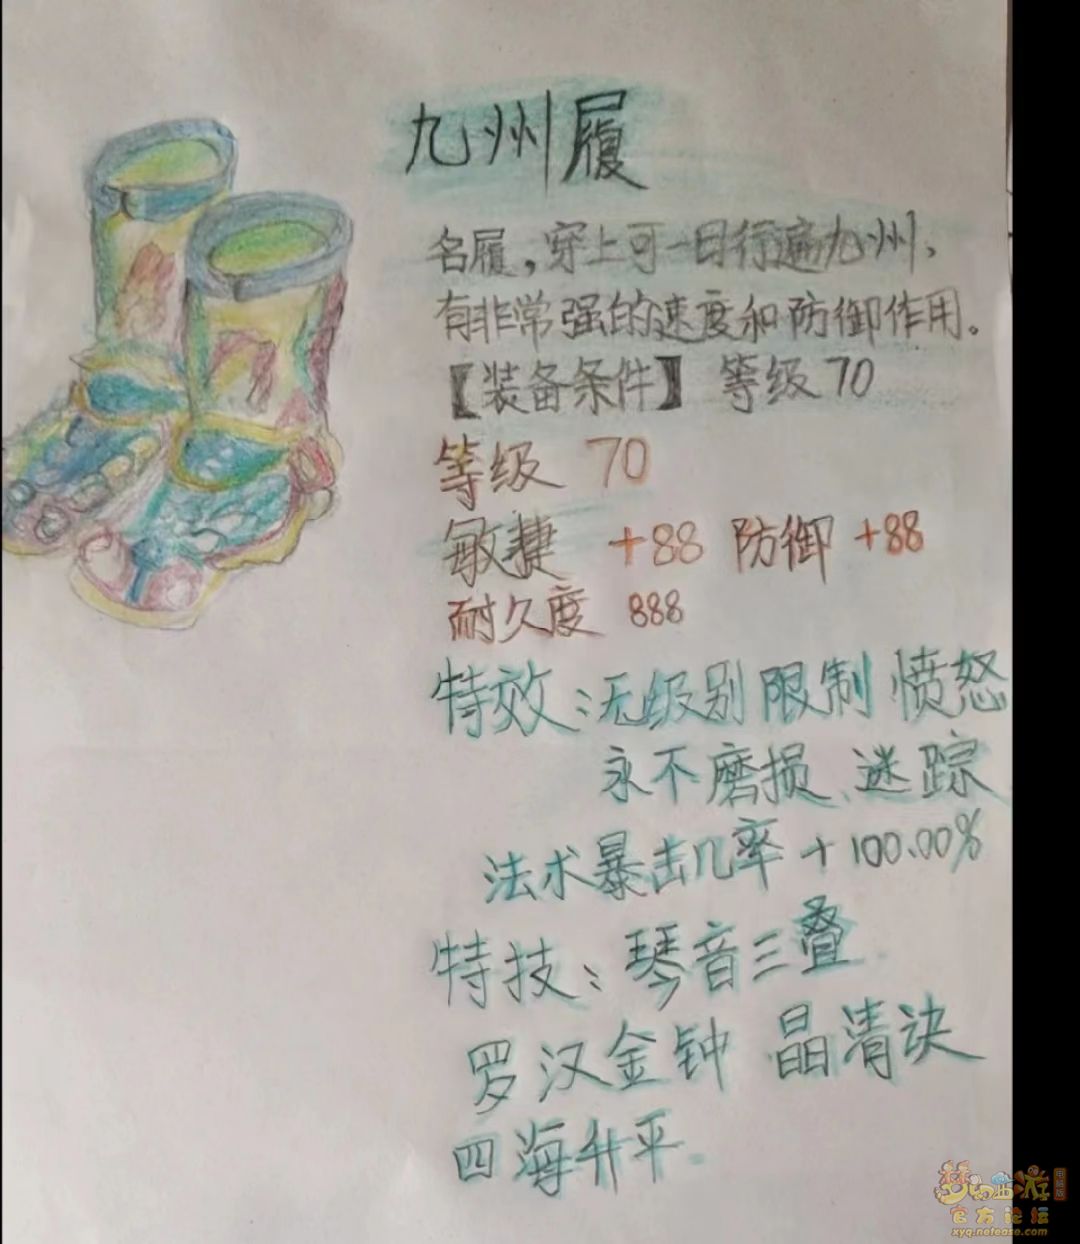 九州履
名履，穿上可一日行遍九州，
有非常强的速度和防御作用。
【装备条件】 等级70
等级 70
敏捷 +88 防御 +88
耐久度 888
特效：无级别限制 愤怒
永不磨损、迷踪
法术暴击几率 +100.00%
特技：琴音三叠
罗汉金钟 晶清诀
四海升平.
梦幻西游 电脑版
官方论坛
xyq.netease.com